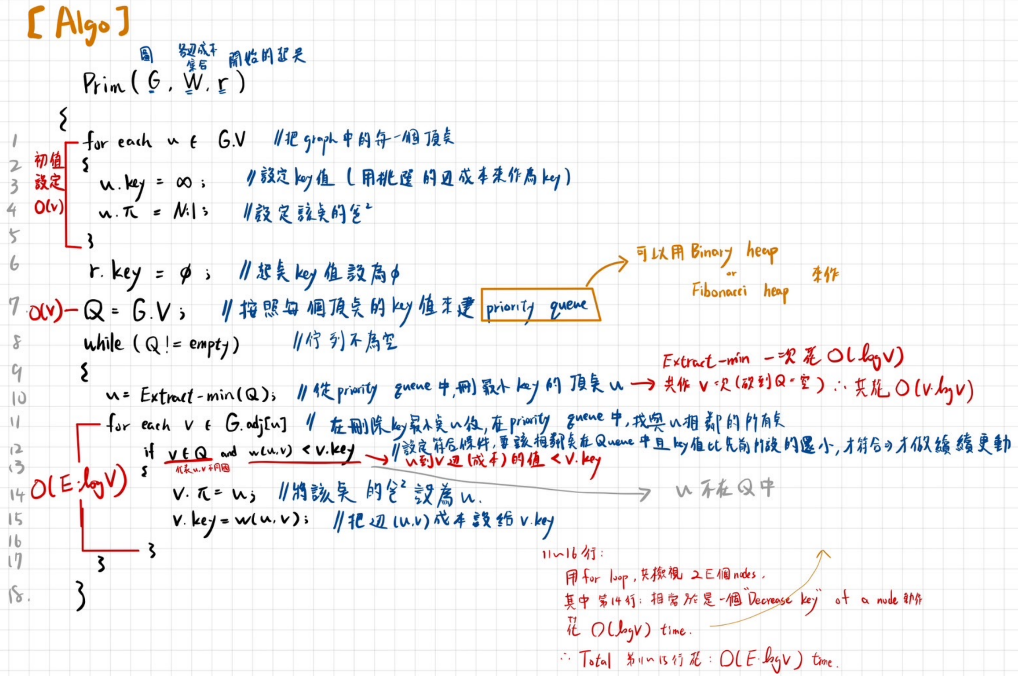 [Algo]
圖 各邊成本集合 開始的起点
Prim(G, W, r)
{
1 for each u ∈ G.V //把graph中的每一個頂点
2 {
3 u.key = ∞; //設定key值(用挑選的边成本來作為key)
4 u.π = Nil; //設定該点的爸²
5 }
初值設定 O(V)
6 r.key = φ; //起点key值設為φ
7 O(V) - Q = G.V; //按照每個頂点的key值來建 priority queue
可以用 Binary heap or Fibonacci heap 來作
8 while (Q != empty) //佇列不為空
9 {
10 u = Extract-min(Q); //從priority queue中,刪最小key的頂点u
Extract-min 一次花 O(logV)
共作V次(砍到Q=空) ∴共花 O(V·logV)
11 for each v ∈ G.adj[u] //在刪除key最小点u後,在priority queue中,找與u相鄰的所有点
12 if v ∈ Q and w(u,v) < v.key //設定符合條件,要該相鄰点在Queue中且key值比先前的還小,才符合→才做繼續更動
代表u,v不同圈
u到v边(成本)的值 < v.key
13 {
u不在Q中
14 v.π = u; //將該点的爸²設為u.
15 v.key = w(u,v); //把边(u,v)成本設給v.key
16 }
O(E·logV)
17 }
18. }
11~16行:
用for loop,共檢視2E個nodes.
其中第14行:相當於是一個"Decrease key" of a node動作
花 O(logV) time.
∴ Total 第11~15行花: O(E·logV) time.